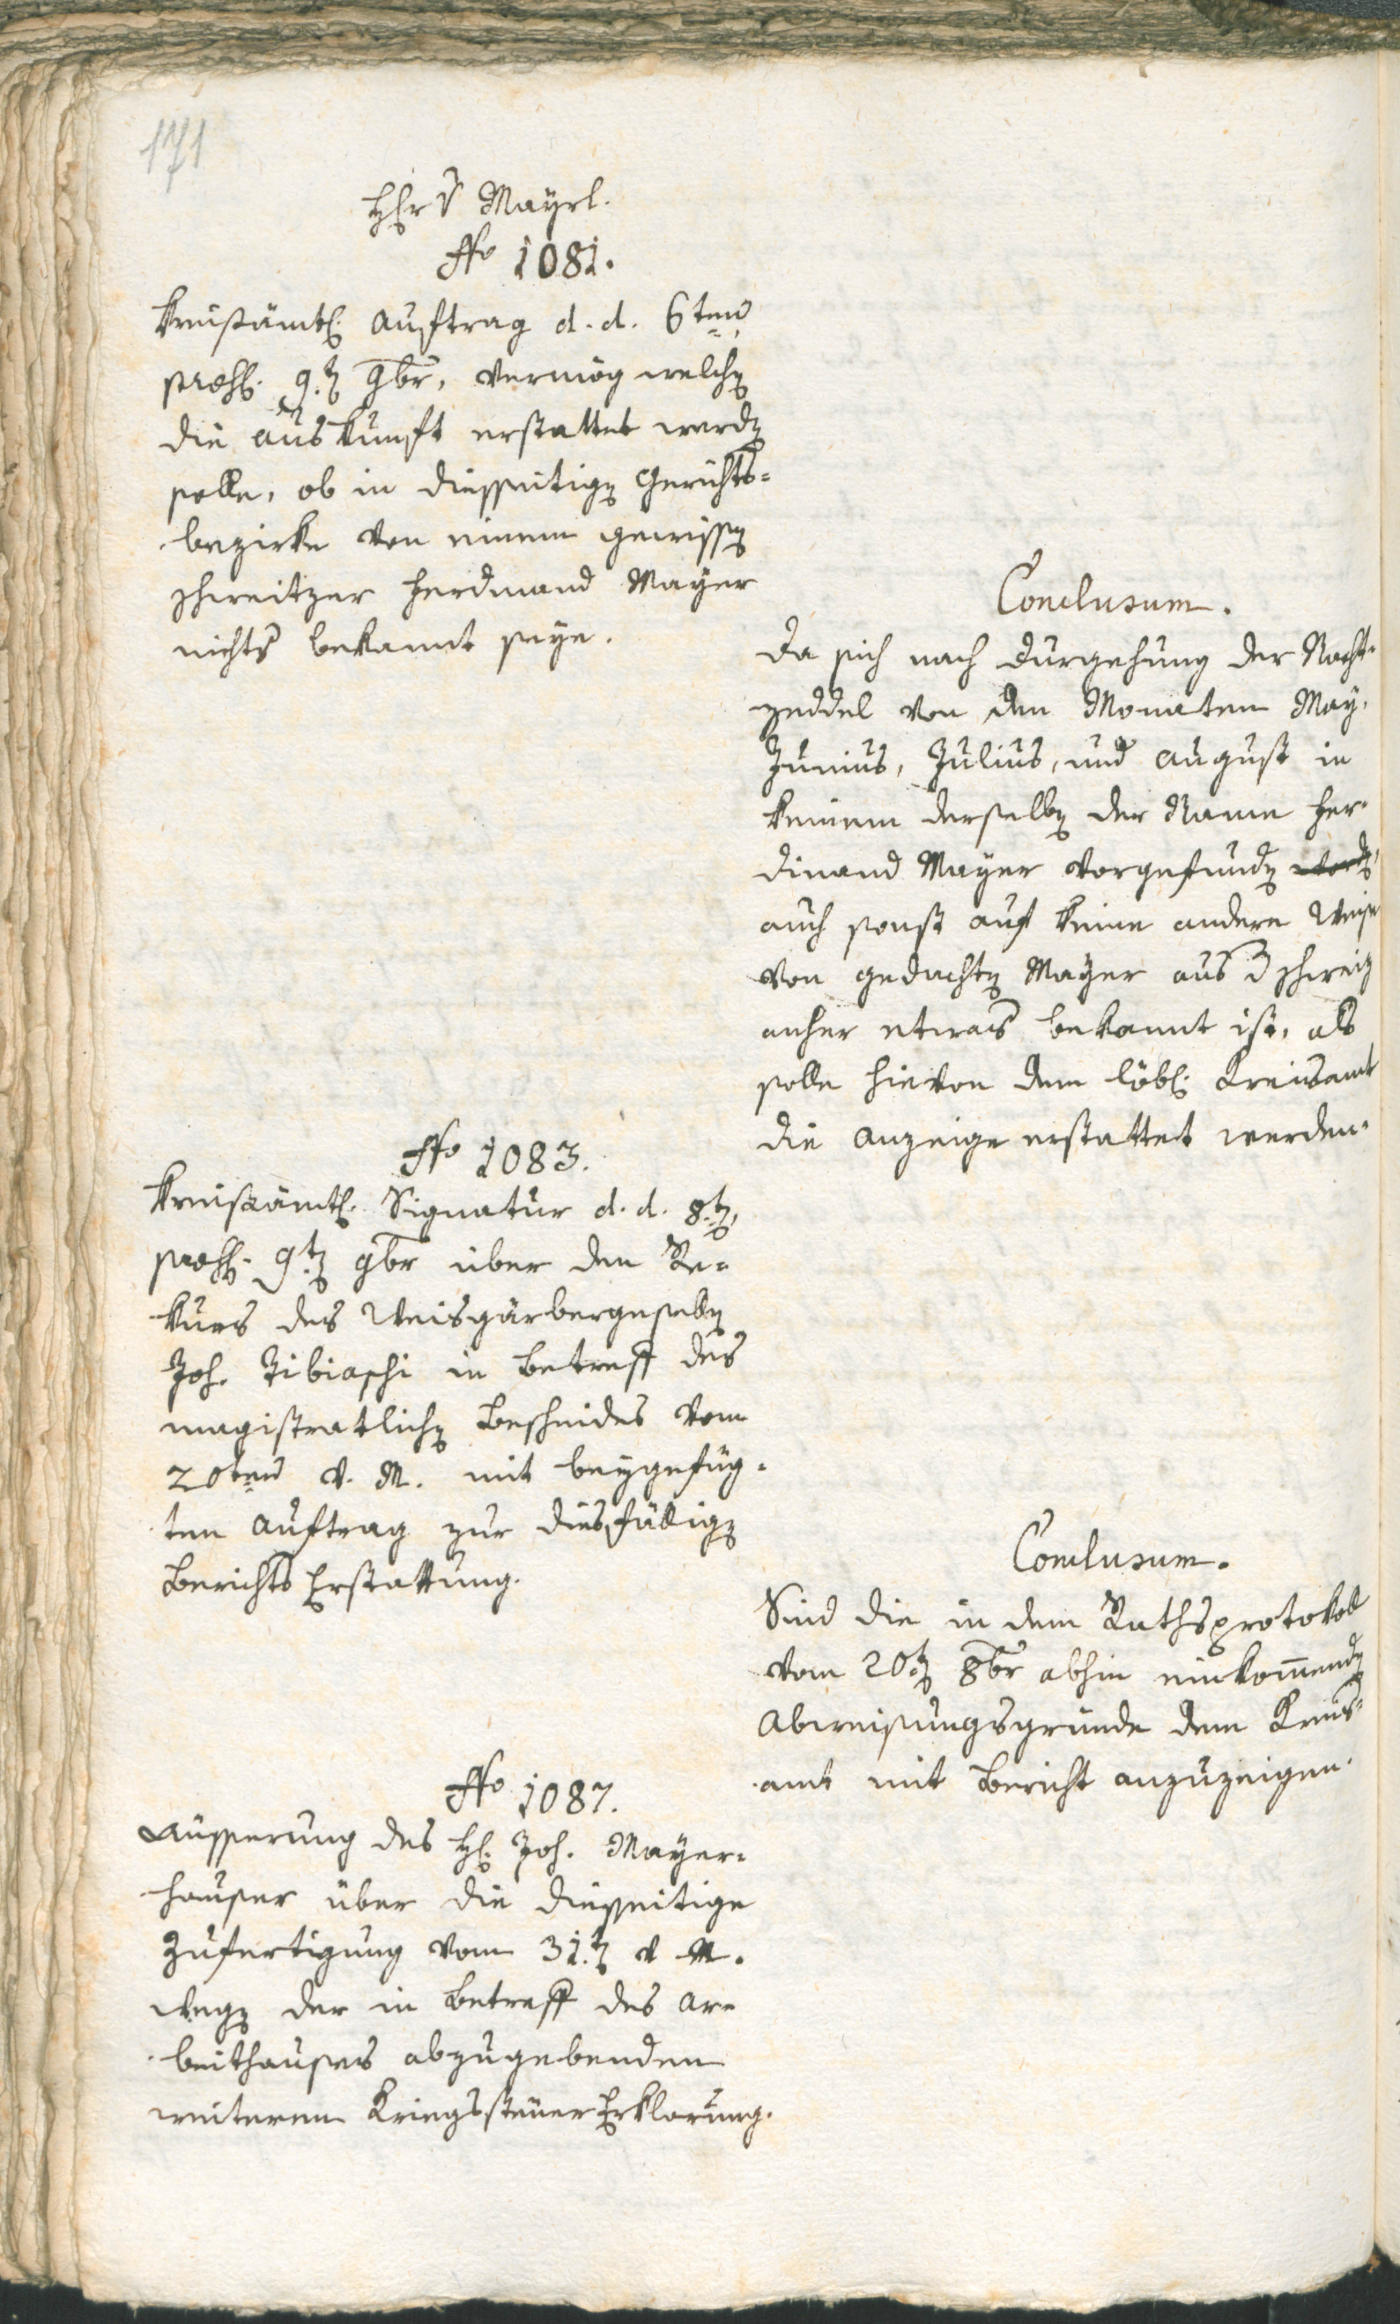 171
Hr v Mayrl.
No 1081.
Kreisämtl. Auftrag d. d. 6ten
praes. 9.t 9br, vermög welchen
die Auskunft erstattet werden
solle, ob in diesseitigen Gerichts-
bezirke von einem gewissen
Schweitzer Ferdinand Mayer
nichts bekannt seye.
Conclusum.
Da sich nach Durgehung der Nacht-
zeddel von den Monaten May,
Junius, Julius, und August in
keinem derselben der Name Fer-
dinand Mayer vorgefunden worden,
auch sonst auf keine andere Weise
von gedachten Mayer aus d Schweiz
anher etwas bekannt ist, als
solle hievon dem löbl. Kreisamt
die Anzeige erstattet werden.
No 1083.
Kreisämtl. Signatur d. d. 8.t,
praes. 9t 9br über den Re-
kurs des Weisgärbergesellen
Joh. Tibiaschi in Betreff des
magistratlichen Bescheides vom
20ten v. M. mit beygefüg-
ten Auftrag zur diesfälligen
Berichts Erstattung.
Conclusum.
Sind die in dem Rathsprotokoll
vom 20.t 8br abhin einkommenden
Abweisungsgründe dem Kreis-
amt mit Bericht anzuzeigen.
No 1087.
Äusserung des H. Joh. Mayer-
hauser über die diesseitige
Zufertigung vom 31.t v M.
wegen der in Betreff des Ar-
beithauses abzugebenden
weiteren Kriegssteuer Erklärung.